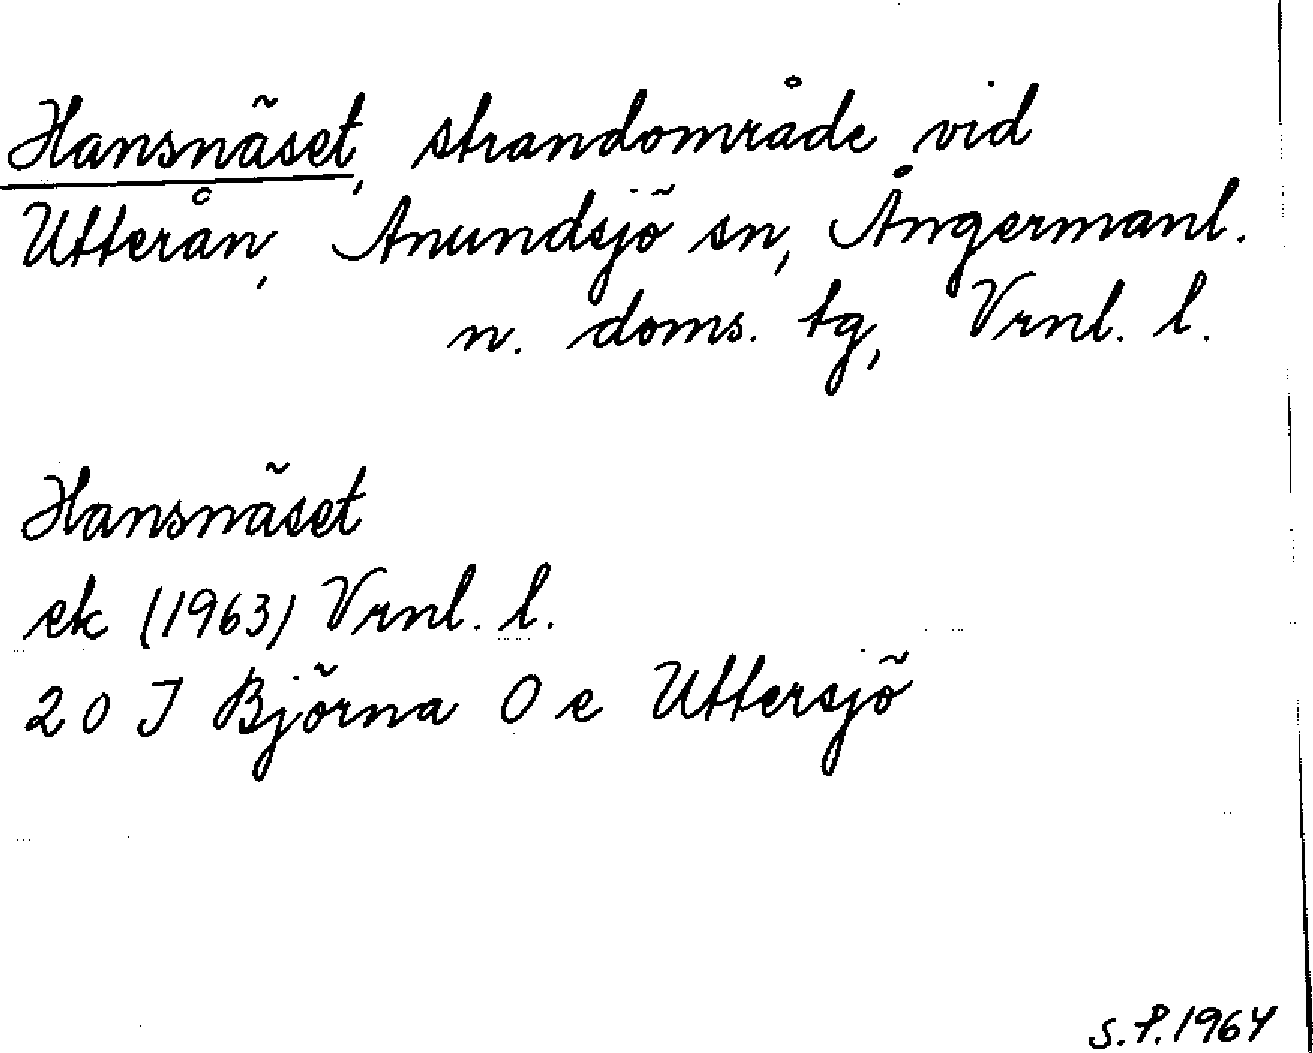 Hansnäset, strandområde vid
Utterån, Anundsjö sn, Ångermanl.
n. doms. tg, Vrnl. l.
Hansnäset
ek (1963) Vrnl. l.
20 J Björna 0 e Uttersjö
S.P. 1964